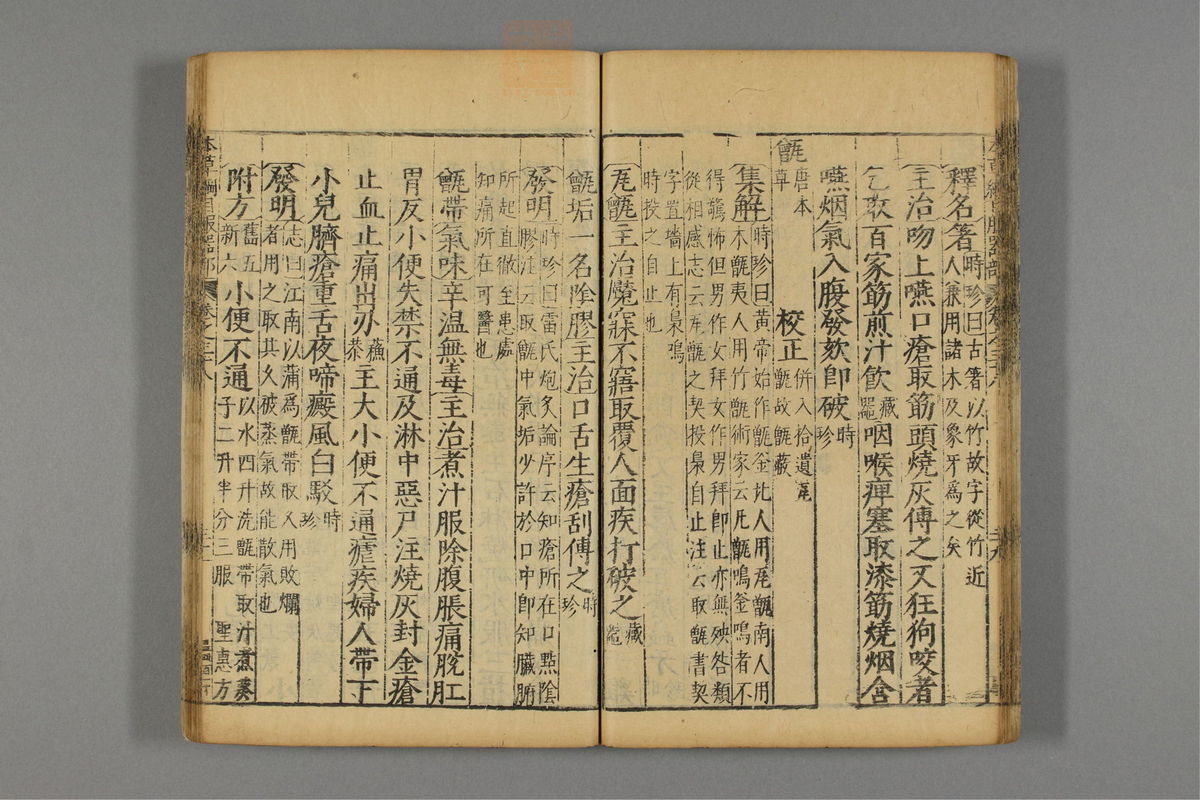 釋名箸時珍曰古箸以竹故字從竹近人兼用諸木及象牙爲之矣
主治吻上嚥口瘡取筯頭燒灰傅之又狂狗咬者
乞取百家筯煎汁飲藏器咽喉痺塞取漆筯燒烟含
嚥烟氣入腹發欬卽破時珍
甑唐本草 校正併入拾遺瓦甑故甑蔽
集解時珍曰黃帝始作甑釜北人用瓦甑南人用木甑夷人用竹甑術家云凡甑鳴釜鳴者不
得驚怖但男作女拜女作男拜卽止亦無殃咎類從相感志云瓦甑之契投梟自止注云取甑書契
字置墻上有梟鳴時投之自止也
瓦甑主治魘寐不寤取覆人面疾打破之藏器
甑垢一名陰膠主治口舌生瘡刮傅之時珍
發明時珍曰雷氏炮炙論序云知瘡所在口㸃陰膠注云取甑中氣垢少許於口中卽知臟腑
所起直徹至患處知痛所在可醫也
甑帶氣味辛温無毒主治煮汁服除腹脹痛脫肛
胃反小便失禁不通及淋中惡尸注燒灰封金瘡
止血止痛出刃蘇恭主大小便不通瘧疾婦人帶下
小兒臍瘡重舌夜啼癜風白駁時珍
發明志曰江南以蒲爲甑帶取久用敗爛者用之取其久被蒸氣故能散氣也
附方舊五新六小便不通以水四升洗甑帶取汁煮葵子二升半分三服 聖惠方
本草綱目服器部 卷之三十八
本草綱目服器部 卷之三十八